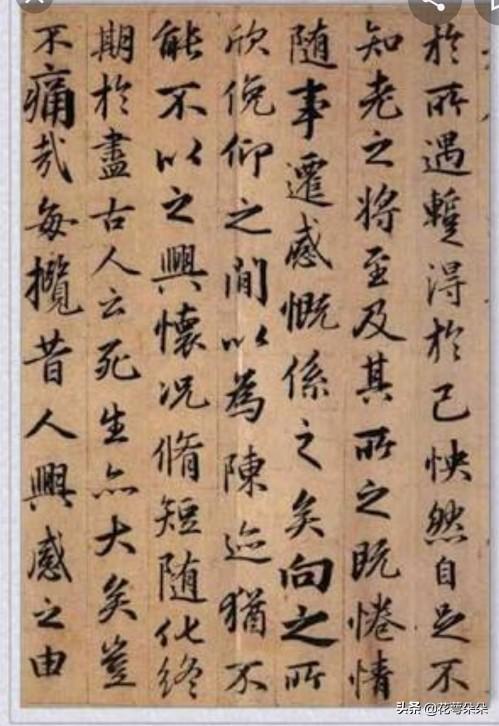 於所遇蹔得於己怏然自足不
知老之將至及其所之既惓情
隨事遷感慨係之矣向之所
欣俛仰之閒以為陳迹猶不
能不以之興懷況脩短隨化終
期於盡古人云死生亦大矣豈
不痛哉每攬昔人興感之由
头条 @花萼朵朵